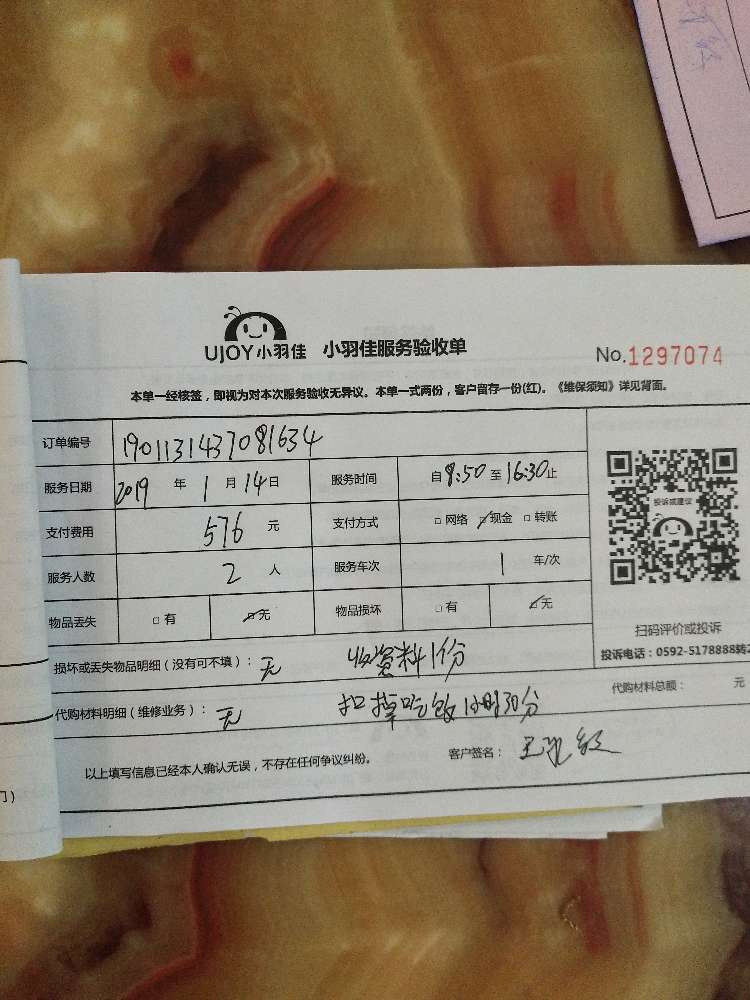 UJOY小羽佳 小羽佳服务验收单 No.1297074
本单一经核签，即视为对本次服务验收无异议。本单一式两份，客户留存一份(红)。《维保须知》详见背面。
订单编号 1901131437081634
服务日期 2019 年 1 月 14 日 服务时间 自 8:50 至 16:30 止
投诉或建议
支付费用 576 元 支付方式 □网络 ☑现金 □转账
服务人数 2 人 服务车次 1 车/次
物品丢失 □有 ☑无 物品损坏 □有 ☑无
扫码评价或投诉
投诉电话：0592-5178888转2
损坏或丢失物品明细（没有可不填）： 无 收资料1份
代购材料明细（维修业务）： 无 扣掉吃饭1小时30分 代购材料总额： 元
以上填写信息已经本人确认无误，不存在任何争议纠纷。 客户签名：
门）